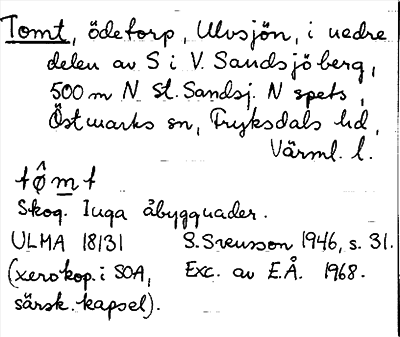 Tomt, ödetorp, Ulvsjön, i nedre
delen av S i V. Sandsjöberg,
500 m N St. Sandsj. N spets,
Östmarks sn, Fryksdals hd,
Värml. l.
tø̂mt
Skog. Inga åbyggnader.
ULMA 18131 S. Svensson 1946, s. 31.
(xerokop. i SOA, Exc. av E.Å. 1968.
särsk. kapsel).